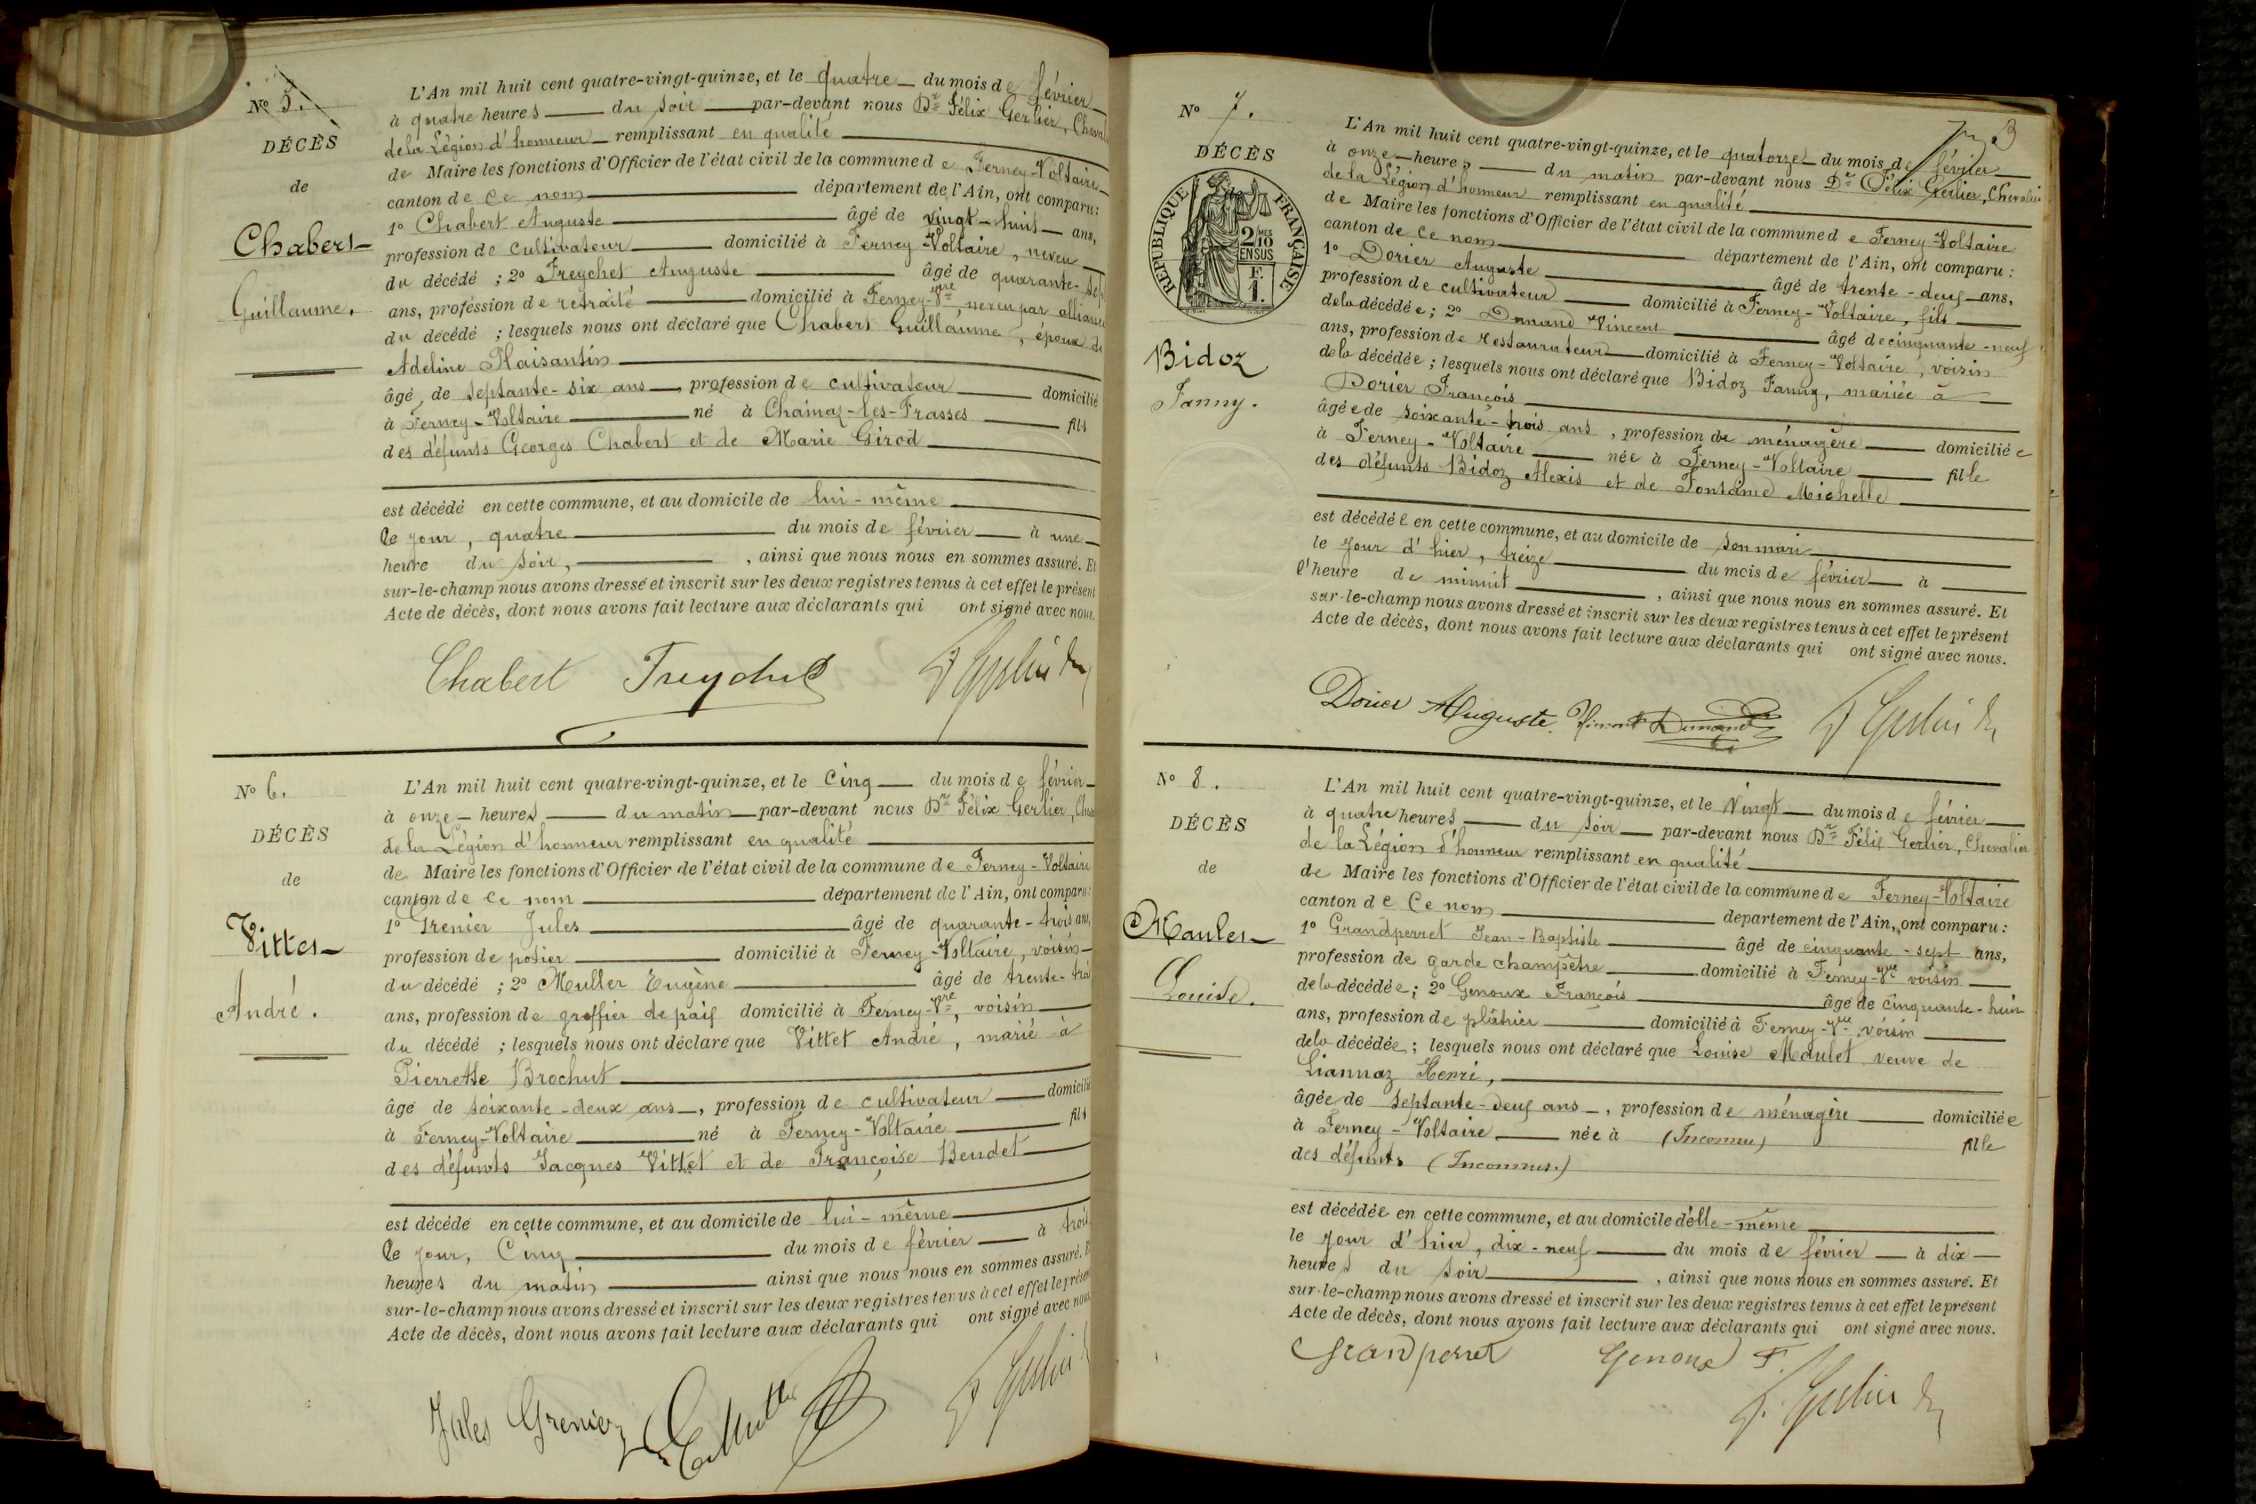 Nº 5.
DÉCÈS
de
Chabert
Guillaume.
L'An mil huit cent quatre-vingt-quinze, et le quatre du mois de février
à quatre heures du soir par-devant nous Dr Félix Gerlier, Cheval
de la Légion d'honneur remplissant en qualité
de Maire les fonctions d'Officier de l'état civil de la commune de Ferney-Voltaire
canton de ce nom département de l'Ain, ont comparu :
1º Chabert Auguste âgé de vingt-huit ans,
profession de cultivateur domicilié à Ferney-Voltaire, neveu
du décédé ; 2º Freychet Auguste âgé de quarante-sep
ans, profession de retraité domicilié à Ferney-Vre neveu par alliance
du décédé ; lesquels nous ont déclaré que Chabert Guillaume, époux de
Adeline Plaisantin
âgé de septante-six ans, profession de cultivateur domicilié
à Ferney-Voltaire né à Chainaz-les-Frasses fils
des défunts Georges Chabert et de Marie Girod
est décédé en cette commune, et au domicile de lui-même
Ce jour, quatre du mois de février à une
heure du soir, , ainsi que nous nous en sommes assuré. Et
sur-le-champ nous avons dressé et inscrit sur les deux registres tenus à cet effet le présent
Acte de décès, dont nous avons fait lecture aux déclarants qui ont signé avec nous.
Chabert Freychet F Gerlier Dr
Nº 6.
DÉCÈS
de
Vittet
André.
L'An mil huit cent quatre-vingt-quinze, et le Cinq du mois de février
à onze heures du matin par-devant nous Dr Félix Gerlier, Chev
de la Légion d'honneur remplissant en qualité
de Maire les fonctions d'Officier de l'état civil de la commune de Ferney-Voltaire
canton de ce nom département de l'Ain, ont comparu :
1º Grenier Jules âgé de quarante-trois ans,
profession de potier domicilié à Ferney-Voltaire, voisin
du décédé ; 2º Muller Eugène âgé de trente-troi
ans, profession de greffier de paix domicilié à Ferney-Vre, voisin
du décédé ; lesquels nous ont déclaré que Vittet André, marié à
Pierrette Brochut
âgé de soixante-deux ans, profession de cultivateur domicilié
à Ferney-Voltaire né à Ferney-Voltaire fils
des défunts Jacques Vittet et de Françoise Bendet
est décédé en cette commune, et au domicile de lui-même
Ce jour, Cinq du mois de février à trois
heures du matin ainsi que nous nous en sommes assuré. E
sur-le-champ nous avons dressé et inscrit sur les deux registres tenus à cet effet le présen
Acte de décès, dont nous avons fait lecture aux déclarants qui ont signé avec nous
Jules Grenier E Muller F Gerlier
3
Nº 7.
DÉCÈS
RÉPUBLIQUE FRANÇAISE
2 MES 10 EN SUS
F. 1.
Bidoz
Fanny.
L'An mil huit cent quatre-vingt-quinze, et le quatorze du mois de février
à onze heures du matin par-devant nous Dr Félix Gerlier, Chevalier
de la Légion d'honneur remplissant en qualité
de Maire les fonctions d'Officier de l'état civil de la commune de Ferney-Voltaire
canton de ce nom département de l'Ain, ont comparu :
1º Dorier Auguste âgé de trente-deux ans,
profession de cultivateur domicilié à Ferney-Voltaire, fils
de la décédée ; 2º Dunand Vincent âgé de cinquante-neuf
ans, profession de restaurateur domicilié à Ferney-Voltaire, voisin
de la décédée ; lesquels nous ont déclaré que Bidoz Fanny, mariée à
Dorier François
âgée de soixante-trois ans, profession de ménagère domiciliée
à Ferney-Voltaire née à Ferney-Voltaire fille
des défunts Bidoz Alexis et de Fontaine Michelle
est décédée en cette commune, et au domicile de son mari
le jour d'hier, treize du mois de février à
l'heure de minuit , ainsi que nous nous en sommes assuré. Et
sur-le-champ nous avons dressé et inscrit sur les deux registres tenus à cet effet le présent
Acte de décès, dont nous avons fait lecture aux déclarants qui ont signé avec nous.
Dorier Auguste. Vincent Dunand F Gerlier Dr
Nº 8.
DÉCÈS
de
Maulet
Louise.
L'An mil huit cent quatre-vingt-quinze, et le Vingt du mois de février
à quatre heures du soir par-devant nous Dr Félix Gerlier, Chevalier
de la Légion d'honneur remplissant en qualité
de Maire les fonctions d'Officier de l'état civil de la commune de Ferney-Voltaire
canton de Ce nom département de l'Ain, ont comparu :
1º Grandperret Jean-Baptiste âgé de cinquante-sept ans,
profession de garde champêtre domicilié à Ferney-Vre voisin
de la décédée ; 2º Genoux François âgé de cinquante-huit
ans, profession de plâtrier domicilié à Ferney-Vre voisin
de la décédée ; lesquels nous ont déclaré que Louise Maulet veuve de
Liannaz Henri,
âgée de septante-deux ans, profession de ménagère domiciliée
à Ferney-Voltaire née à (Inconnu) fille
des défunts (Inconnus.)
est décédée en cette commune, et au domicile d'elle-même
le jour d'hier, dix-neuf du mois de février à dix
heures du soir , ainsi que nous nous en sommes assuré. Et
sur-le-champ nous avons dressé et inscrit sur les deux registres tenus à cet effet le présent
Acte de décès, dont nous avons fait lecture aux déclarants qui ont signé avec nous.
Grandperret Genoux F. F. Gerlier Dr